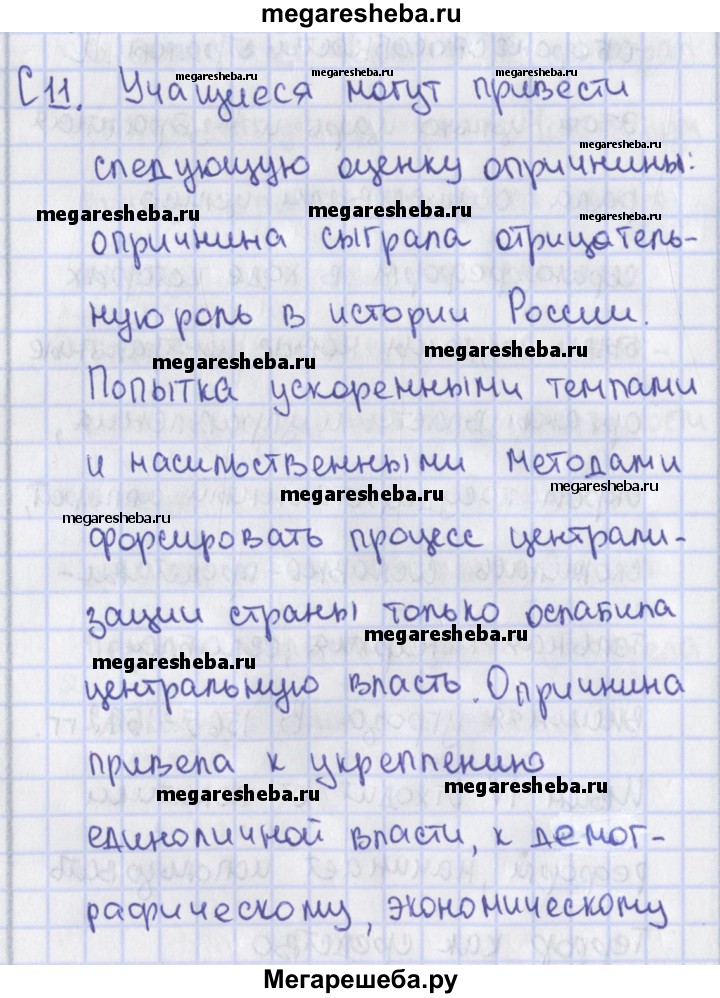 megaresheba.ru
С 11. Учащиеся могут привести
megaresheba.ru
megaresheba.ru
следующую оценку опричнины:
megaresheba.ru
megaresheba.ru
megaresheba.ru
megaresheba.ru
опричнина сыграла отрицатель-
ную роль в истории России.
megaresheba.ru
Попытка ускоренными темпами
и насильственными методами
megaresheba.ru
megaresheba.ru
megaresheba.ru
форсировать процесс централи-
зации страны только ослабила
megaresheba.ru
megaresheba.ru
центральную власть. Опричнина
привела к укреплению
megaresheba.ru
megaresheba.ru
единоличной власти, к демог-
рафическому, экономическому
Мегарешеба.ру